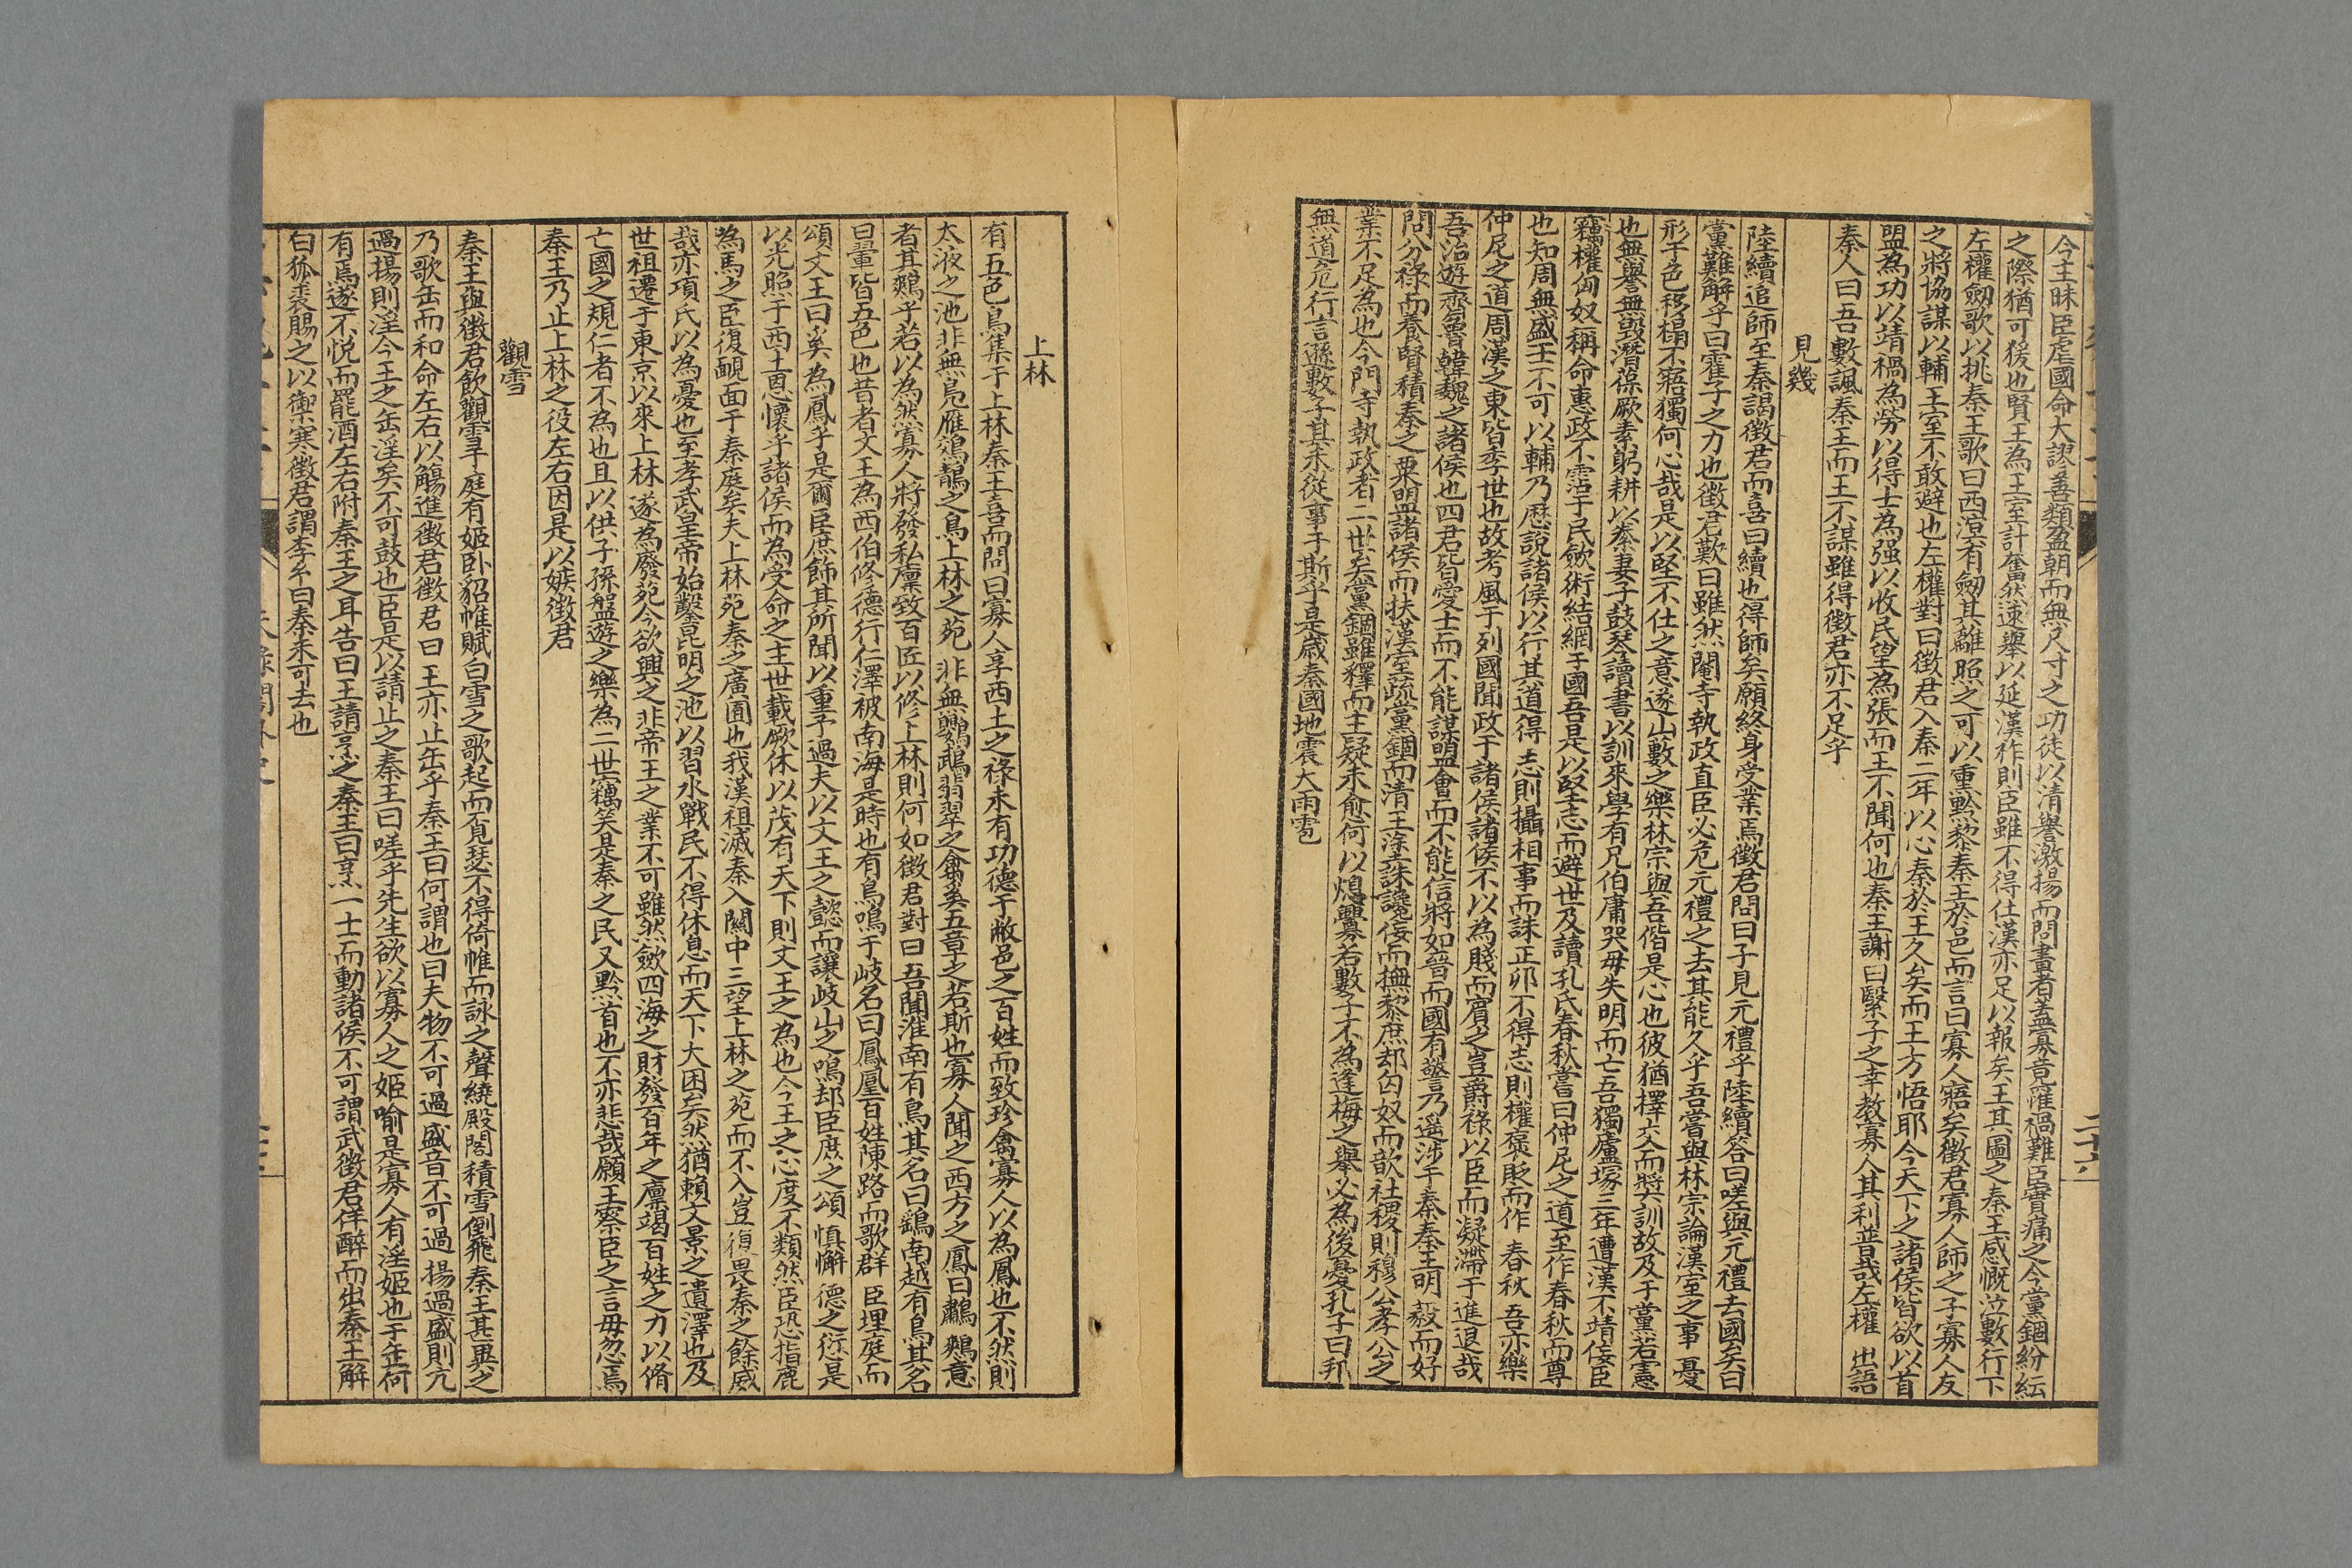 今王昧臣虐國命大謬善類盈朝而無尺寸之功徒以清譽激揚而問晝者蓋寡竟罹禍難臣實痛之今黨錮紛紜
之際猶可援也賢王為王室計奮然速舉以延漢祚則臣雖不得仕漢亦足以報矣王其圖之秦王感慨泣數行下
左權劒歌以挑秦王歌曰西涼有劒其離照之可以熏黔黎秦王於邑而言曰寡人寤矣徵君寡人師之子寡人友
之將協謀以輔王室不敢避也左權對曰徵君入秦二年以心秦於王久矣而王方悟耶今天下之諸侯皆欲以首
盟為功以靖禍為勞以得士為强以收民望為張而王不聞何也秦王謝曰緊子之幸教寡人其利普哉左權出語
秦人曰吾數諷秦王而王不謀雖得徵君亦不足乎
見幾
陸續追師至秦謁徵君而喜曰續也得師矣願終身受業焉徵君問曰子見元禮乎陸續答曰嗟與元禮去國矣曰
黨難解乎曰霍子之力也徵君歎曰雖然閹寺執政直臣必危元禮之去其能久乎吾嘗與林宗論漢室之事憂
形于色移榻不寤獨何心哉是以堅不仕之意遂山藪之樂林宗與吾偕是心也彼猶擇交而奬訓故及于黨若憲
也無譽無毀潛葆厥素躬耕以養妻子鼓琴讀書以訓來學有兄伯庸哭母失明而亡吾獨廬塚三年遭漢不靖佞臣
竊權匈奴稱命惠政不霑于民歛術結網于國吾是以堅志而避世及讀孔氏春秋嘗曰仲尼之道至作春秋而尊
也知周無盛王不可以輔乃歷說諸侯以行其道得志則攝相事而誅正卯不得志則權褒貶而作春秋吾亦樂
仲尼之道周漢之東皆季世也故考風于列國聞政于諸侯諸侯不以為賤而賓之豈爵祿以臣而凝滯于進退哉
吾治遊齊魯韓魏之諸侯也四君皆愛士而不能謀盟會而不能信將如晉而國有警乃遥涉于秦秦王明毅而好
問分祿而養賢積秦之粟盟諸侯而扶漢室疏黨錮而清王塗誅讒佞而撫黎庶却匈奴而歆社稷則穆公孝公之
業不足為也今門寺執政者二世矣黨錮雖釋而主疑未愈何以熄興募若數子不為逢梅之舉必為後憂孔子曰邦
無道危行言遜數子其未從事于斯乎是歲秦國地震大雨雹
二十六
上林
有五色鳥集于上林秦王喜而問曰寡人享西土之祿未有功德于敝邑之百姓而致珍禽寡人以為鳳也不然則
太液之池非無鳧雁鵁鶄之鳥上林之苑非無鸚鵡翡翠之禽奚五章之若斯也寡人聞之西方之鳳曰鸘鷞意
者其鷞乎若以為然寡人將發私廩致百匠以修上林則何如徵君對曰吾聞淮南有鳥其名曰鷂南越有鳥其名
曰翬皆五色也昔者文王為西伯修德行仁澤被南海是時也有鳥鳴于岐名曰鳳凰百姓陳路而歌群臣埋庭而
頌文王曰奚為鳳乎是爾臣庶飾其所聞以重予過夫以文王之懿而讓岐山之鳴却臣庶之頌慎懈德之衍是
以光照于西土惠懷乎諸侯而為受命之主世載厥休以茂有天下則文王之為也今王之心度不類然臣恐指鹿
為馬之臣復靦面于秦庭矣夫上林苑秦之廣囿也我漢祖滅秦入關中三望上林之苑而不入豈復畏秦之餘威
哉亦項氏以為憂也至孝武皇帝始鑿昆明之池以習水戰民不得休息而天下大困矣然猶賴文景之遺澤也及
世祖遷于東京以來上林遂為廢苑今欲興之非帝王之業不可雖然歛四海之財發百年之廪竭百姓之力以脩
亡國之規仁者不為也且以供子孫盤遊之樂為二世竊笑是秦之民又黔首也不亦悲哉願王察臣之言毋忽焉
秦王乃止上林之役左右因是以嫉徵君
觀雪
秦王與徵君飲觀雪于庭有姬卧貂帷賦白雪之歌起而覓瑟不得倚帷而詠之聲繞殿閣積雪倒飛秦王甚異之
乃歌缶而和命左右以觴進徵君徵君曰王亦止缶乎秦王曰何謂也曰夫物不可過盛音不可過揚過盛則亢
過揚則淫今王之缶淫矣不可鼓也臣是以請止之秦王曰嗟乎先生欲以寡人之姬喻是寡人有淫姬也于缶何
有焉遂不悅而罷酒左右附秦王之耳告曰王請烹之秦王曰烹一士而動諸侯不可謂武徵君佯醉而出秦王解
白狐裘賜之以禦寒徵君謂李玄曰秦未可去也